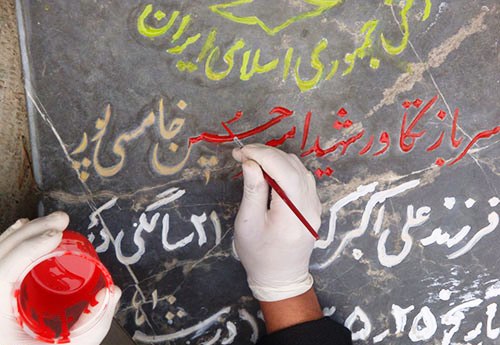 جمهوری اسلامی ایران
سرباز تکاور شهید امیر حسین خامسی پور
فرزند علی اکبر که ۲۱ سالگی
تاریخ ۲۵